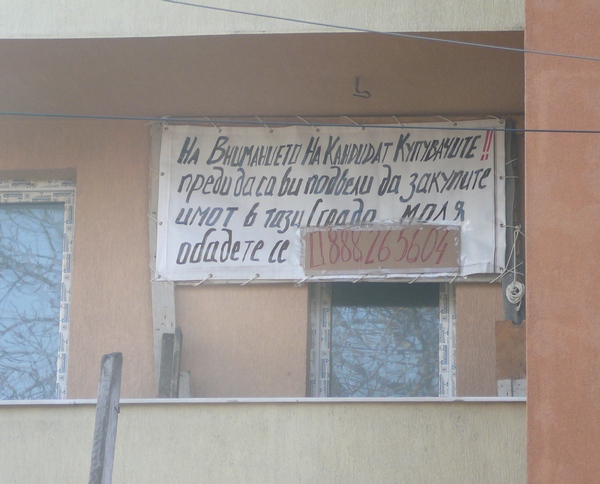 На Вниманието На Кандидат Купувачите!!
преди да са ви подвели да закупите
имот в тази Сграда моля
обадете се 0888265604